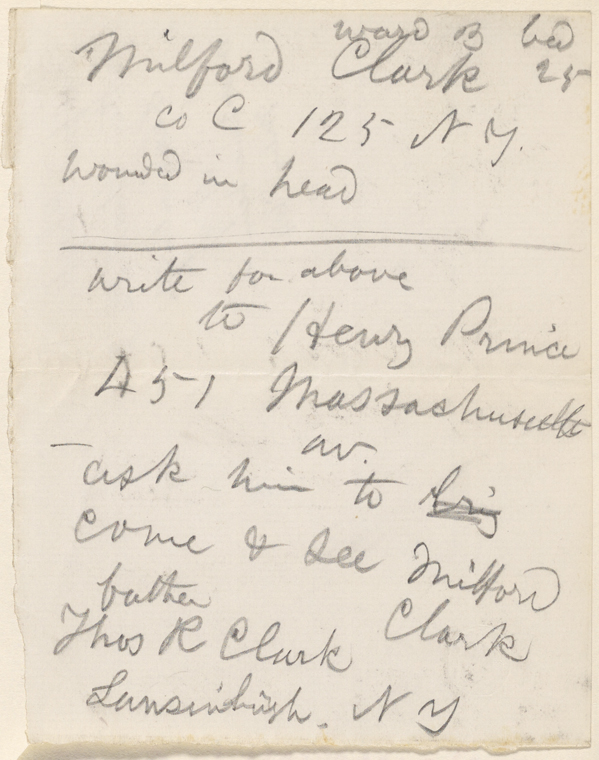 ward B bed
Milford Clark 25
co C 125 N Y.
wounded in head
write for above
to Henry Prince
451 Massachusetts
av.
- ask him to
come & see Milford
Clark
Thos R Clark
Lansinburgh. N Y